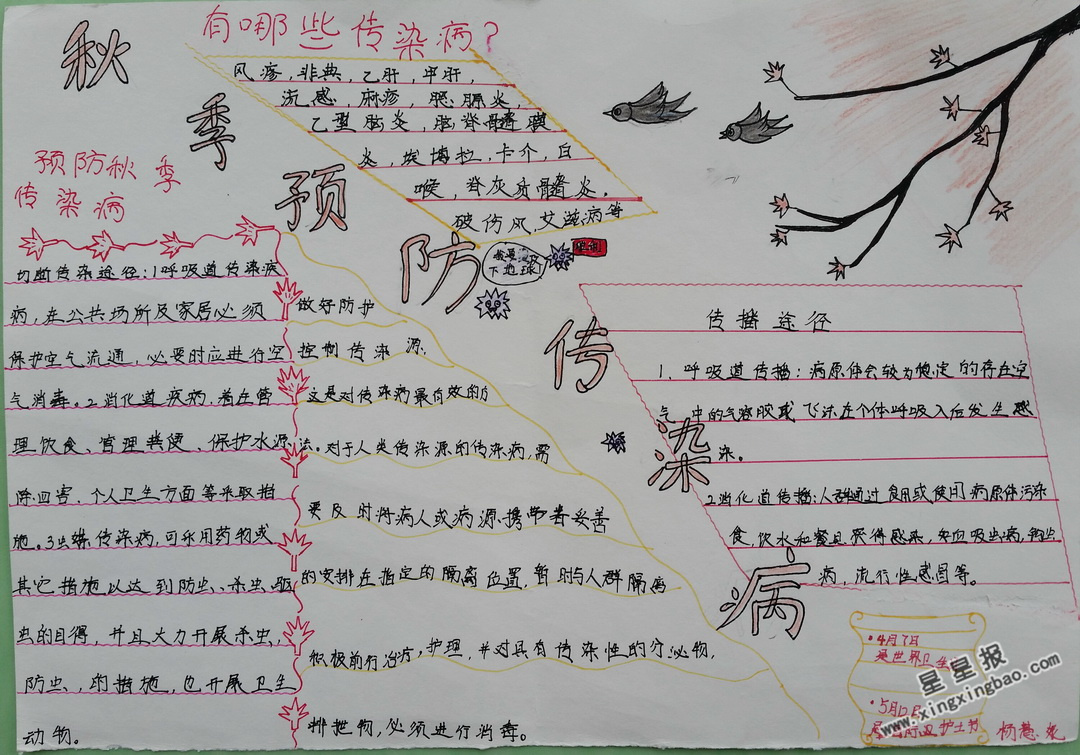 秋季预防传染病
有哪些传染病？
风疹，非典，乙肝，甲肝，
流感，麻疹，腮腺炎，
乙型脑炎，脑脊髓膜
炎，埃博拉，卡介，白
喉，脊灰质髓炎，
破伤风，艾滋病等
预防秋季
传染病
切断传染途径：1呼吸道传染疾
病，在公共场所及家居必须
保护空气流通，必要时应进行空
气消毒。2消化道疾病，着在管
理饮食、管理粪便、保护水源
除四害，个人卫生方面等采取措
施。3虫媒传染病，可利用药物或
其它措施以达到防虫、杀虫、驱
虫的目得，并且大力开展杀虫，
防虫，的措施，也开展卫生
动物。
做好防护
控制传染源，
这是对传染病最有效的方
法。对于人类传染源的传染病，需
要及时将病人或病源携带者妥善
的安排在指定的隔离位置，暂时与人群隔离
积极前行治疗，护理，并对具有传染性的分泌物，
排泄物，必须进行消毒。
下地球
传播途径
1、呼吸道传播：病原体会较为稳定的存在空
气中的气溶胶或飞沫在个体呼吸入后发生感
染。
2消化道传播：人群通过食用或使用病原体污染
食，饮水和餐具获得感染，
病，流行性感冒等。
·4月7日
是世界卫生
·5月12日
护士节
星星报
www.xingxingbao.com